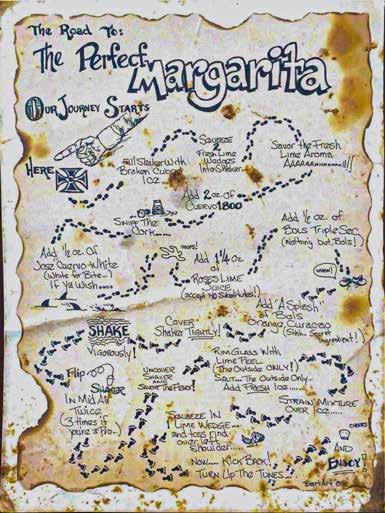 The Road To:
The Perfect
Margarita
Our Journey Starts
HERE
Fill Shaker With
Broken Cubed
Ice...
Squeeze
2
Fresh Lime
Wedges
Into Shaker
Savor the Fresh
Lime Aroma
Sniff The
Cork.....
Add 2 oz. Of
Cuervo 1800
Add 1/2 oz. Of
Jose Cuervo White
(White for Bite~)
If Ya Wish....
Add 1 1/4 oz
of
Roses Lime
Juice
(accept No Substitutes!)
Add 1/2 oz. of
Bols Triple Sec
(Nothing but Bols!)
Add "A Splash"
of Bols
Orange Curacao
(Shh.. Secret
Ingredient!)
Cover
Shaker TIGHTLY!
SHAKE
Vigorously!
Flip
Shaker
In Mid Air
Twice
(3 Times if
you're a Pro..)
Uncover
Shaker
and
Savor The Flavor!
Rim Glass With
Lime Peel
(The Outside ONLY!)
Salt... The Outside Only...
Add FRESH Ice.....
Strain Mixture
Over Ice.....
Squeeze In
Lime Wedge...
and toss rind
over left
shoulder.....
Now.... Kick Back!
Turn Up The Tunes...
AND
ENJOY!